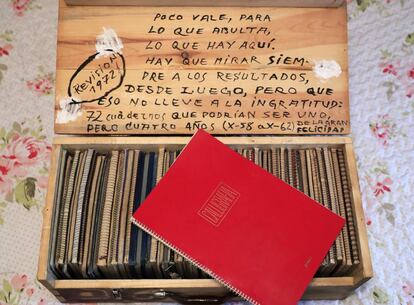 POCO VALE, PARA
LO QUE ABULTA,
LO QUE HAY AQUÍ.
HAY QUE MIRAR SIEM-
PRE A LOS RESULTADOS,
DESDE LUEGO, PERO QUE
ESO NO LLEVE A LA INGRATITUD:
72 CUADERNOS QUE PODRÍAN SER UNO,
PERO CUATRO AÑOS (X-58 a X-62) DE LA GRAN
FELICIDAD
REVISIÓN
1972